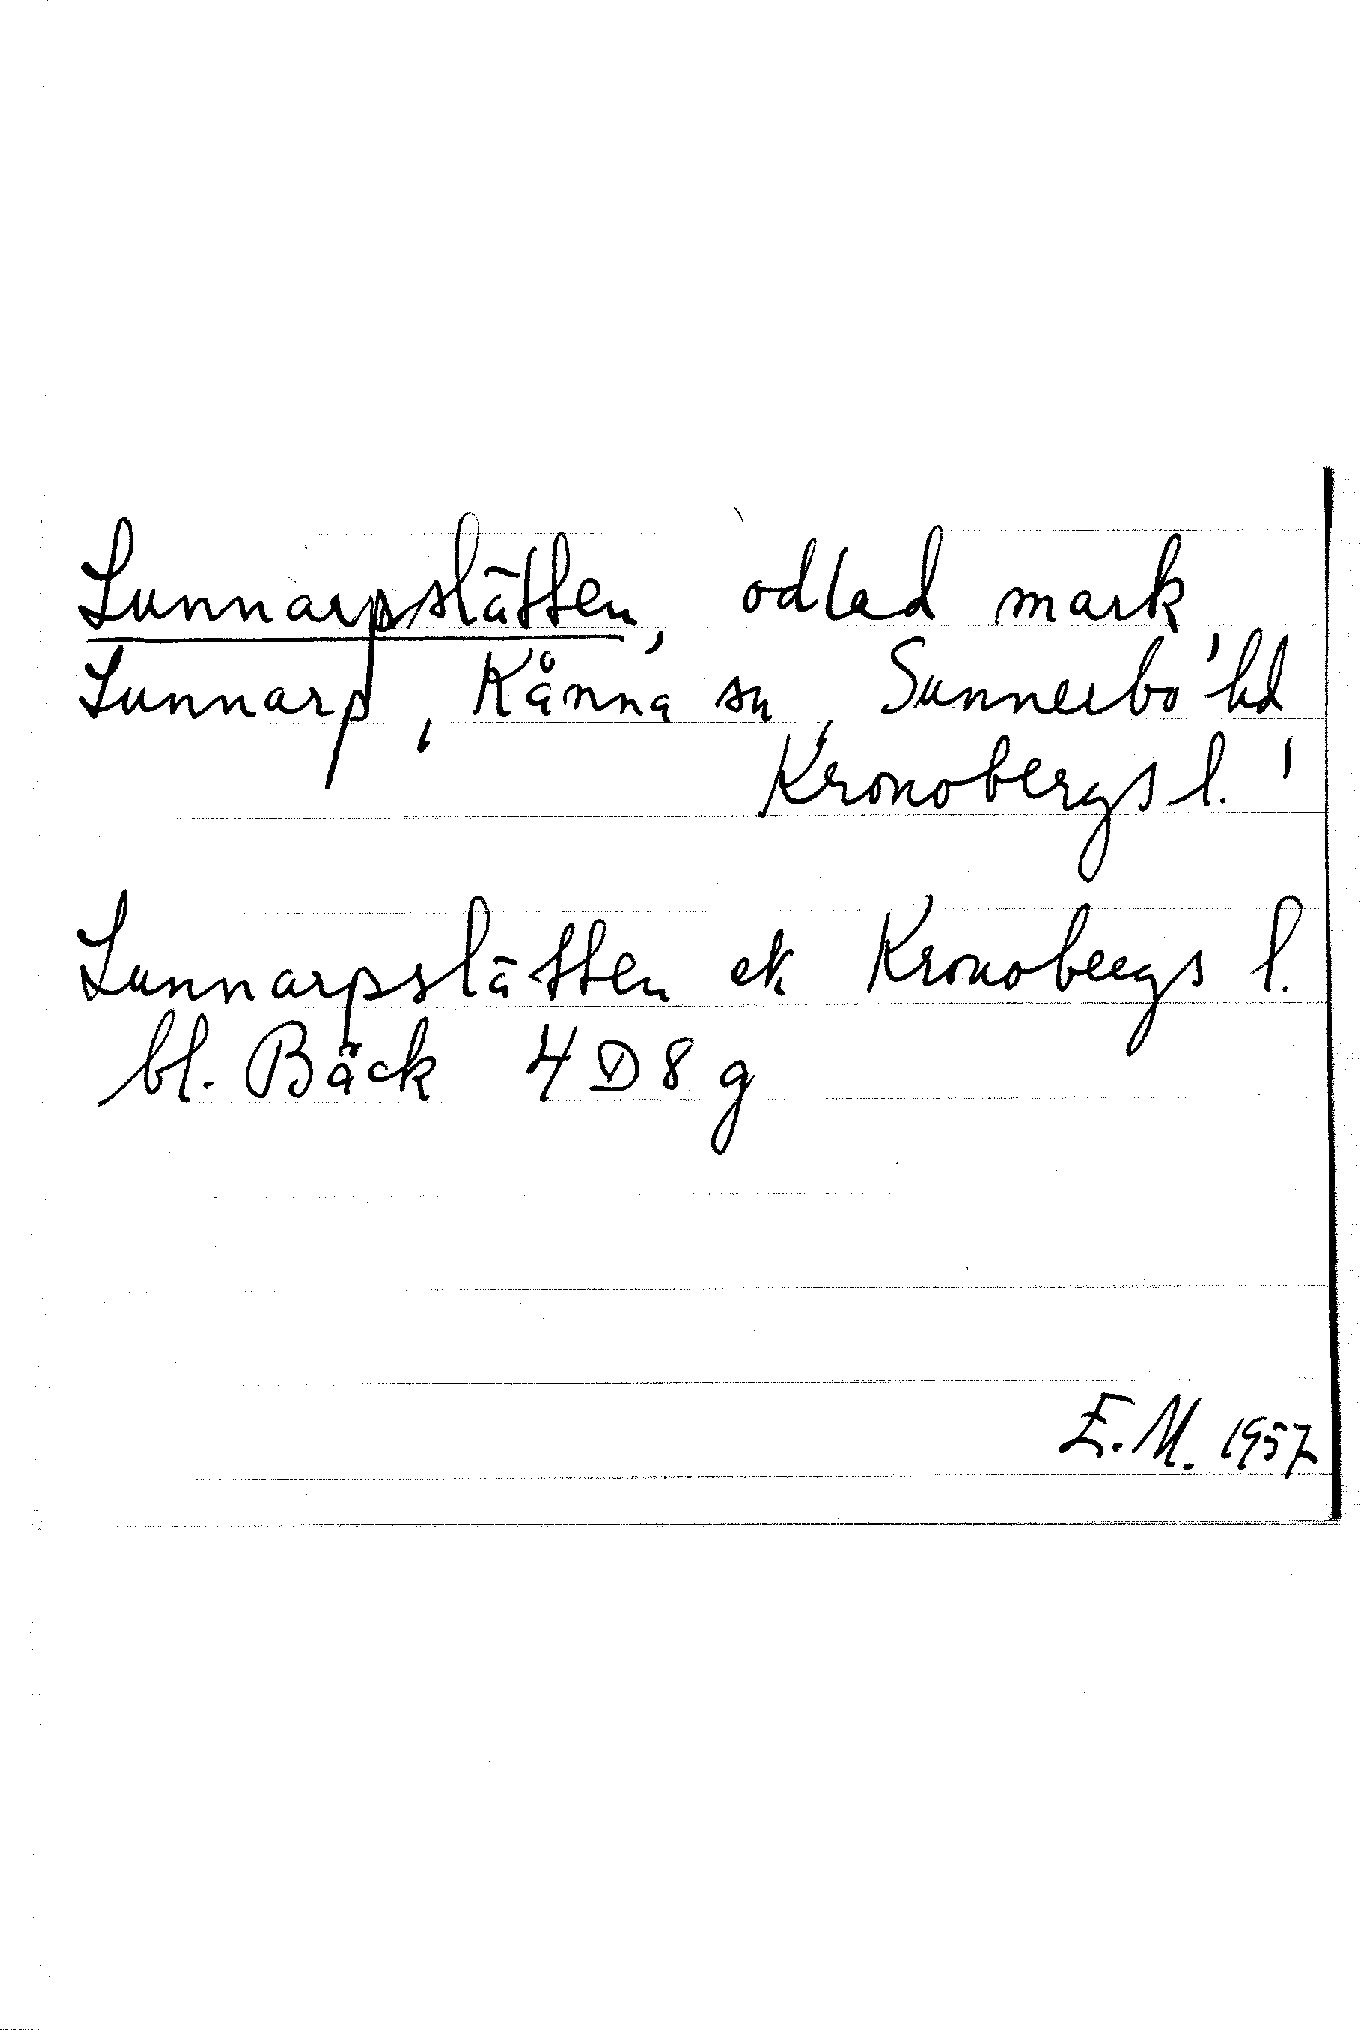 Lunnarpslätten, odlad mark,
Lunnarp, Kånna sn, Sunnerbo hd,
Kronobergs l.
Lunnarpslätten ek Kronobergs l.
bl. Bäck 4 D 8 g
E.M. 1957